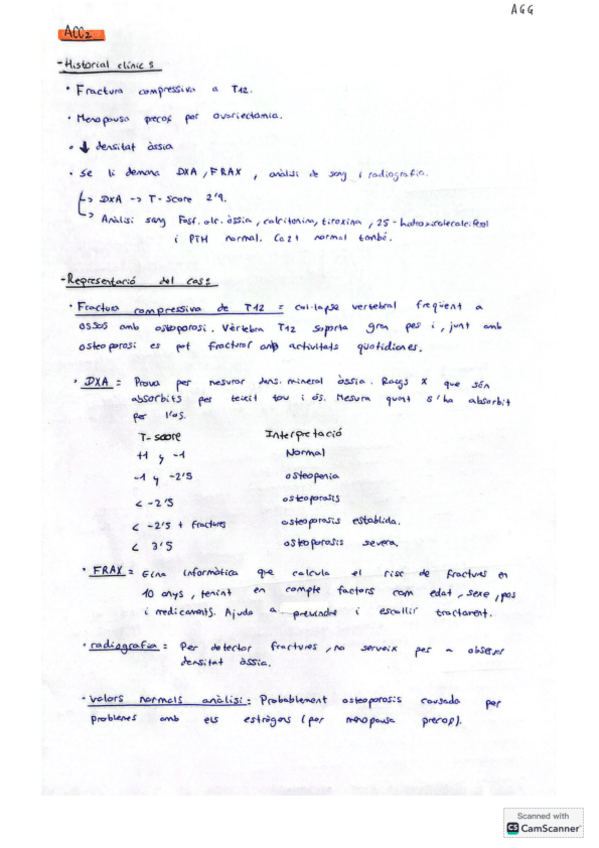 AGG
ACC2
- Historial clínic:
• Fractura compressiva a T12.
• Menopausa precoç per ovariectomia.
• ↓ densitat òssia
• se li demana DXA, FRAX, anàlisi de sang i radiografia.
↳ DXA -> T-score 2'9.
↳ Anàlisi sang Fosf. alc. òssia, calcitonina, tiroxina, 25-hidroxicolecalciferol
i PTH normal. Ca2+ normal també.
- Representació del cas:
• Fractura compressiva de T12 = col·lapse vertebral freqüent a
ossos amb osteoporosi. Vèrtebra T12 suporta gran pes i, junt amb
osteoporosi es pot fracturar amb activitats quotidianes.
• DXA = Prova per mesurar dens. mineral òssia. Raigs X que són
absorbits per teixit tou i ós. Mesura quant s'ha absorbit
per l'os.
T-score Interpretació
+1 y -1 Normal
-1 y -2'5 osteopenia
< -2'5 osteoporosis
< -2'5 + fractures osteoporosis establida.
< 3'5 osteoporosis severa.
• FRAX = Eina informàtica que calcula el risc de fractures en
10 anys, tenint en compte factors com edat, sexe, pes
i medicaments. Ajuda a previndre i escollir tractament.
• radiografia = Per detectar fractures, no serveix per a observar
densitat òssia.
• valors normals anàlisi = Probablement osteoporosis causada per
problemes amb els estrògens (per menopausa precoç).
Scanned with
CS CamScanner